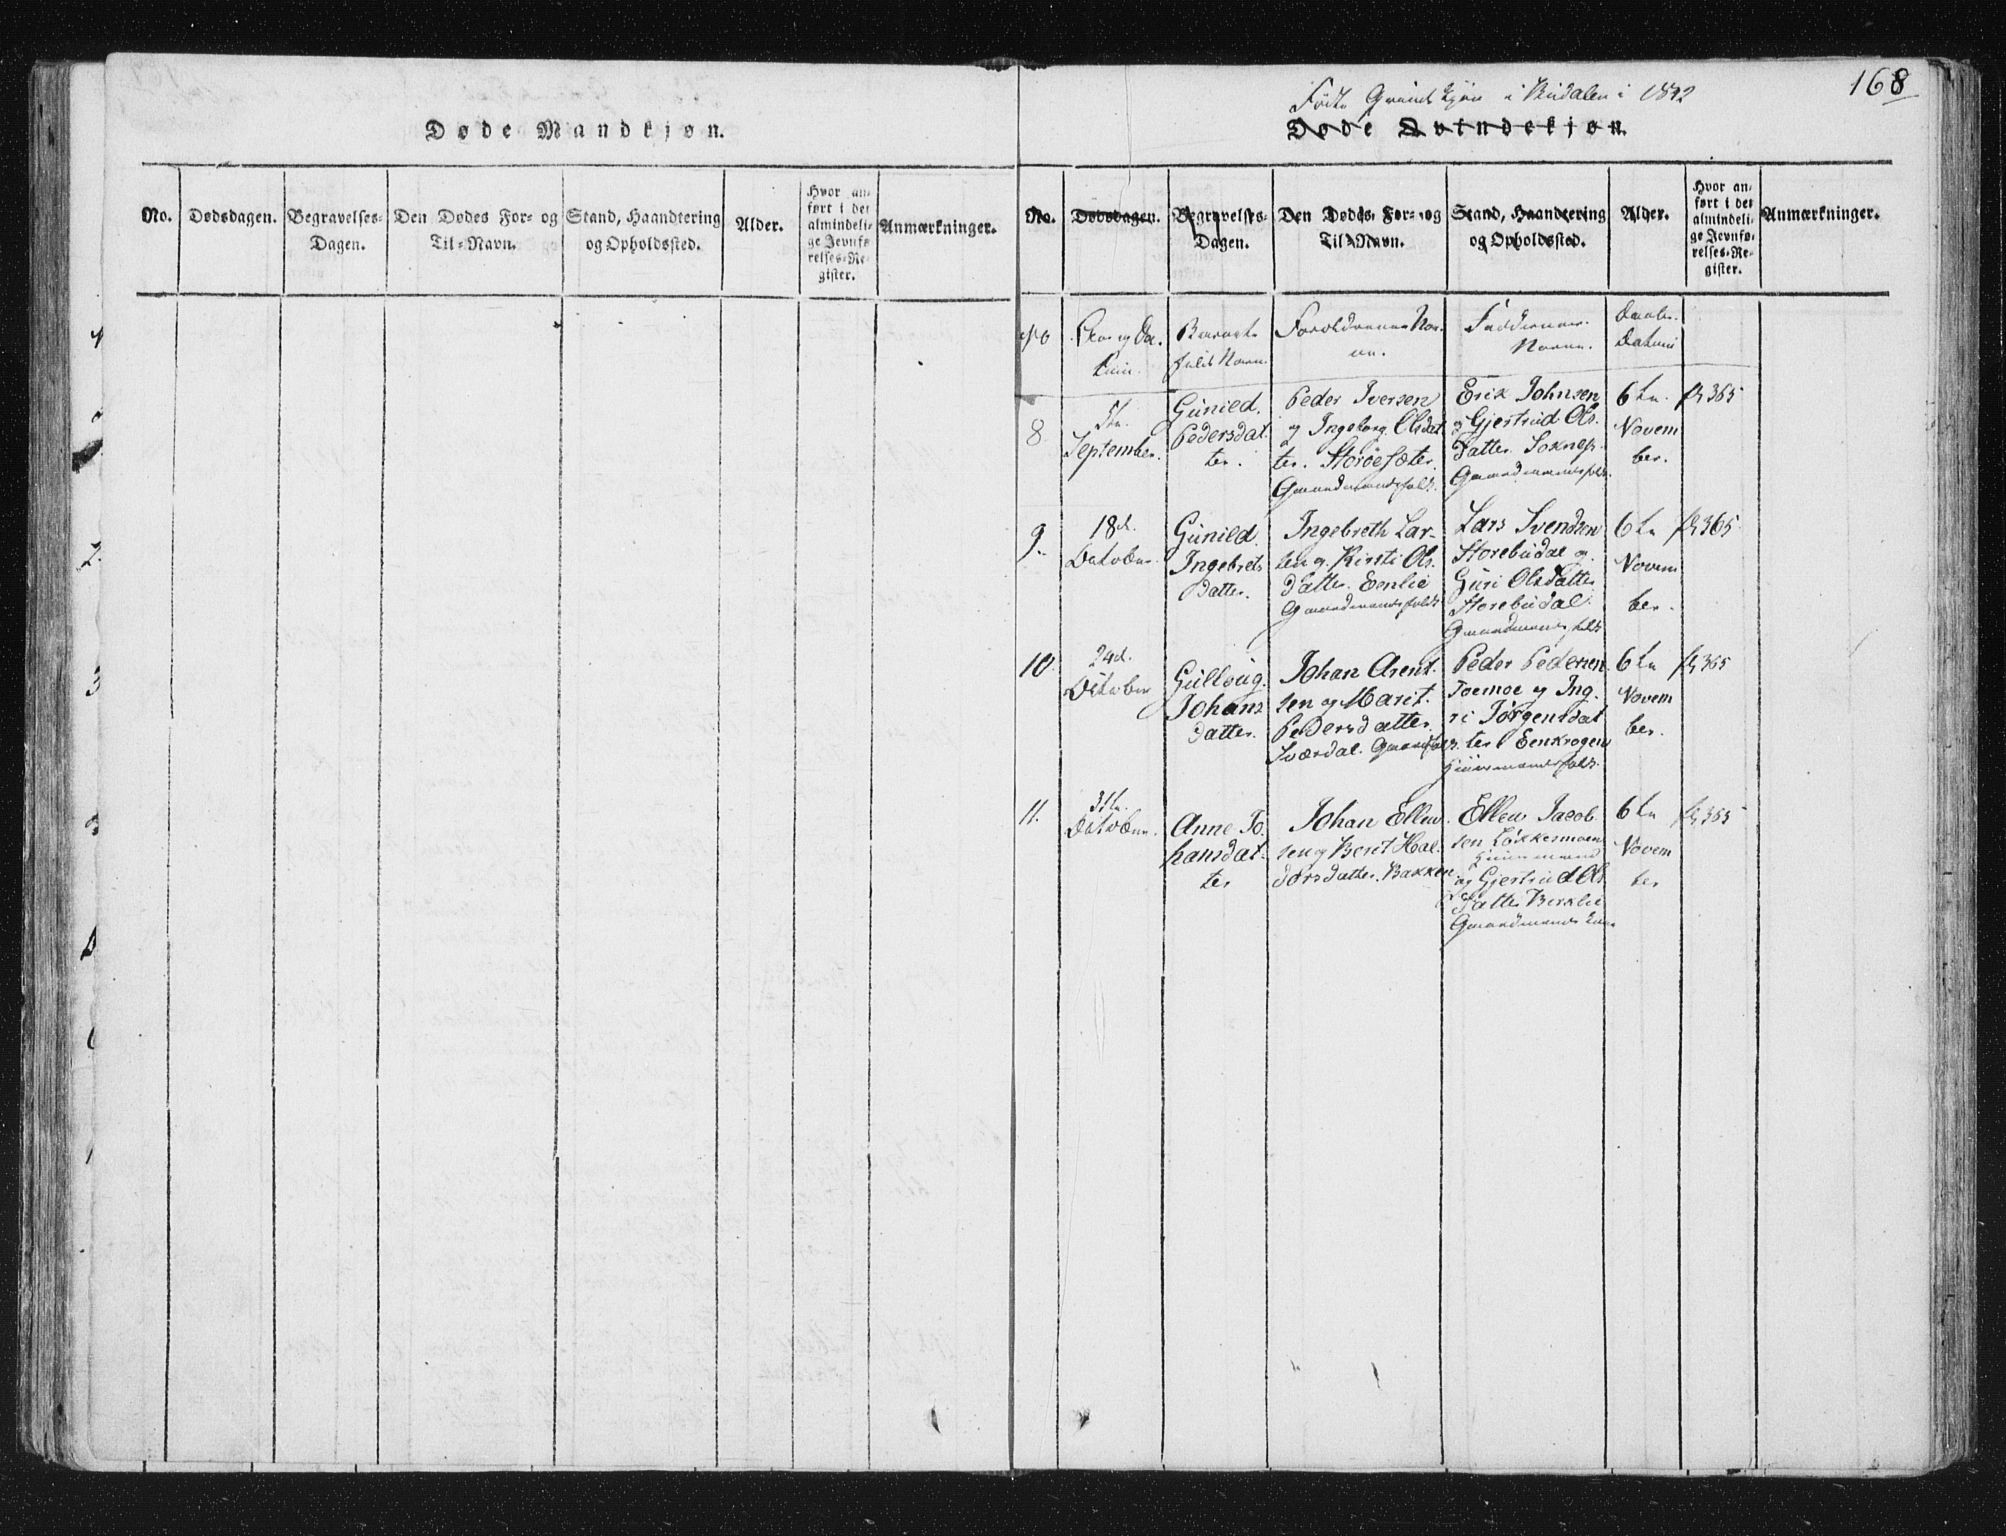 Døde Mandkjøn.
No.
Dødsdagen.
Begravelses-
Dagen.
Den Dødes For- og
Til-Navn.
Stand, Haandtering
og Opholdssted.
Alder.
Hvor an-
ført i det
almindeli-
ge Jevnfø-
relses-Re-
gister.
Anmærkninger.
168
Fødte i Budalen i 1842
Døde Qvindekjøn.
No.
Dødsdagen.
Begravelses-
Dagen.
Den Dødes For- og
Til-Navn.
Stand, Haandtering
og Opholdssted.
Alder.
Hvor an-
ført i det
almindeli-
ge Jevnfø-
relses-Re-
gister.
Anmærkninger.
No
Aar og Da-
tum.
Barnets
fulde Navn.
Forældrenes Nav-
ne.
Faddernes
Navne.
Daabs-
Datum
8
5te
September.
Gunild
Pedersdat-
ter.
Peder Iversen
og Ingeborg Olsdat-
ter. Storøesæter.
Gaardmandsfolk.
Erik Johnsen
og Gjertrud Ols-
datter Soknes.
Gaardmandsfolk.
6te
Novem
ber.
365
9.
18d.
October.
Gunild
Ingebrets
Datter.
Ingebreth Lar-
sen og Kirsti Ols-
datter Eenlie
Gaardmandsfolk
Lars Svendsen
Storebudal og
Guri Olsdatter
Storebudal.
Gaardmandsfolk
6te
Novem
ber.
365
10.
24d.
October
Gullaug
Johans
datter.
Johan Arent-
sen og Marit
Pedersdatter
Sværdal. Gaardfolk.
Peder Pedersen
Toemoe og Ing-
ri Jørgensdat
ter Eenkrogen
Huusmandsfolk.
6te
Novem
ber.
365
11.
31te
October.
Anne Jo-
hansdat-
ter
Johan Ellev-
sen og Berit Hal-
dorsdatter. Bakken.
Ellev Jacob-
sen Løkkesmoen
Huusmand
og Gjertrud Ols
datter Berklie
Gaardmands
6te
Novem
ber
365